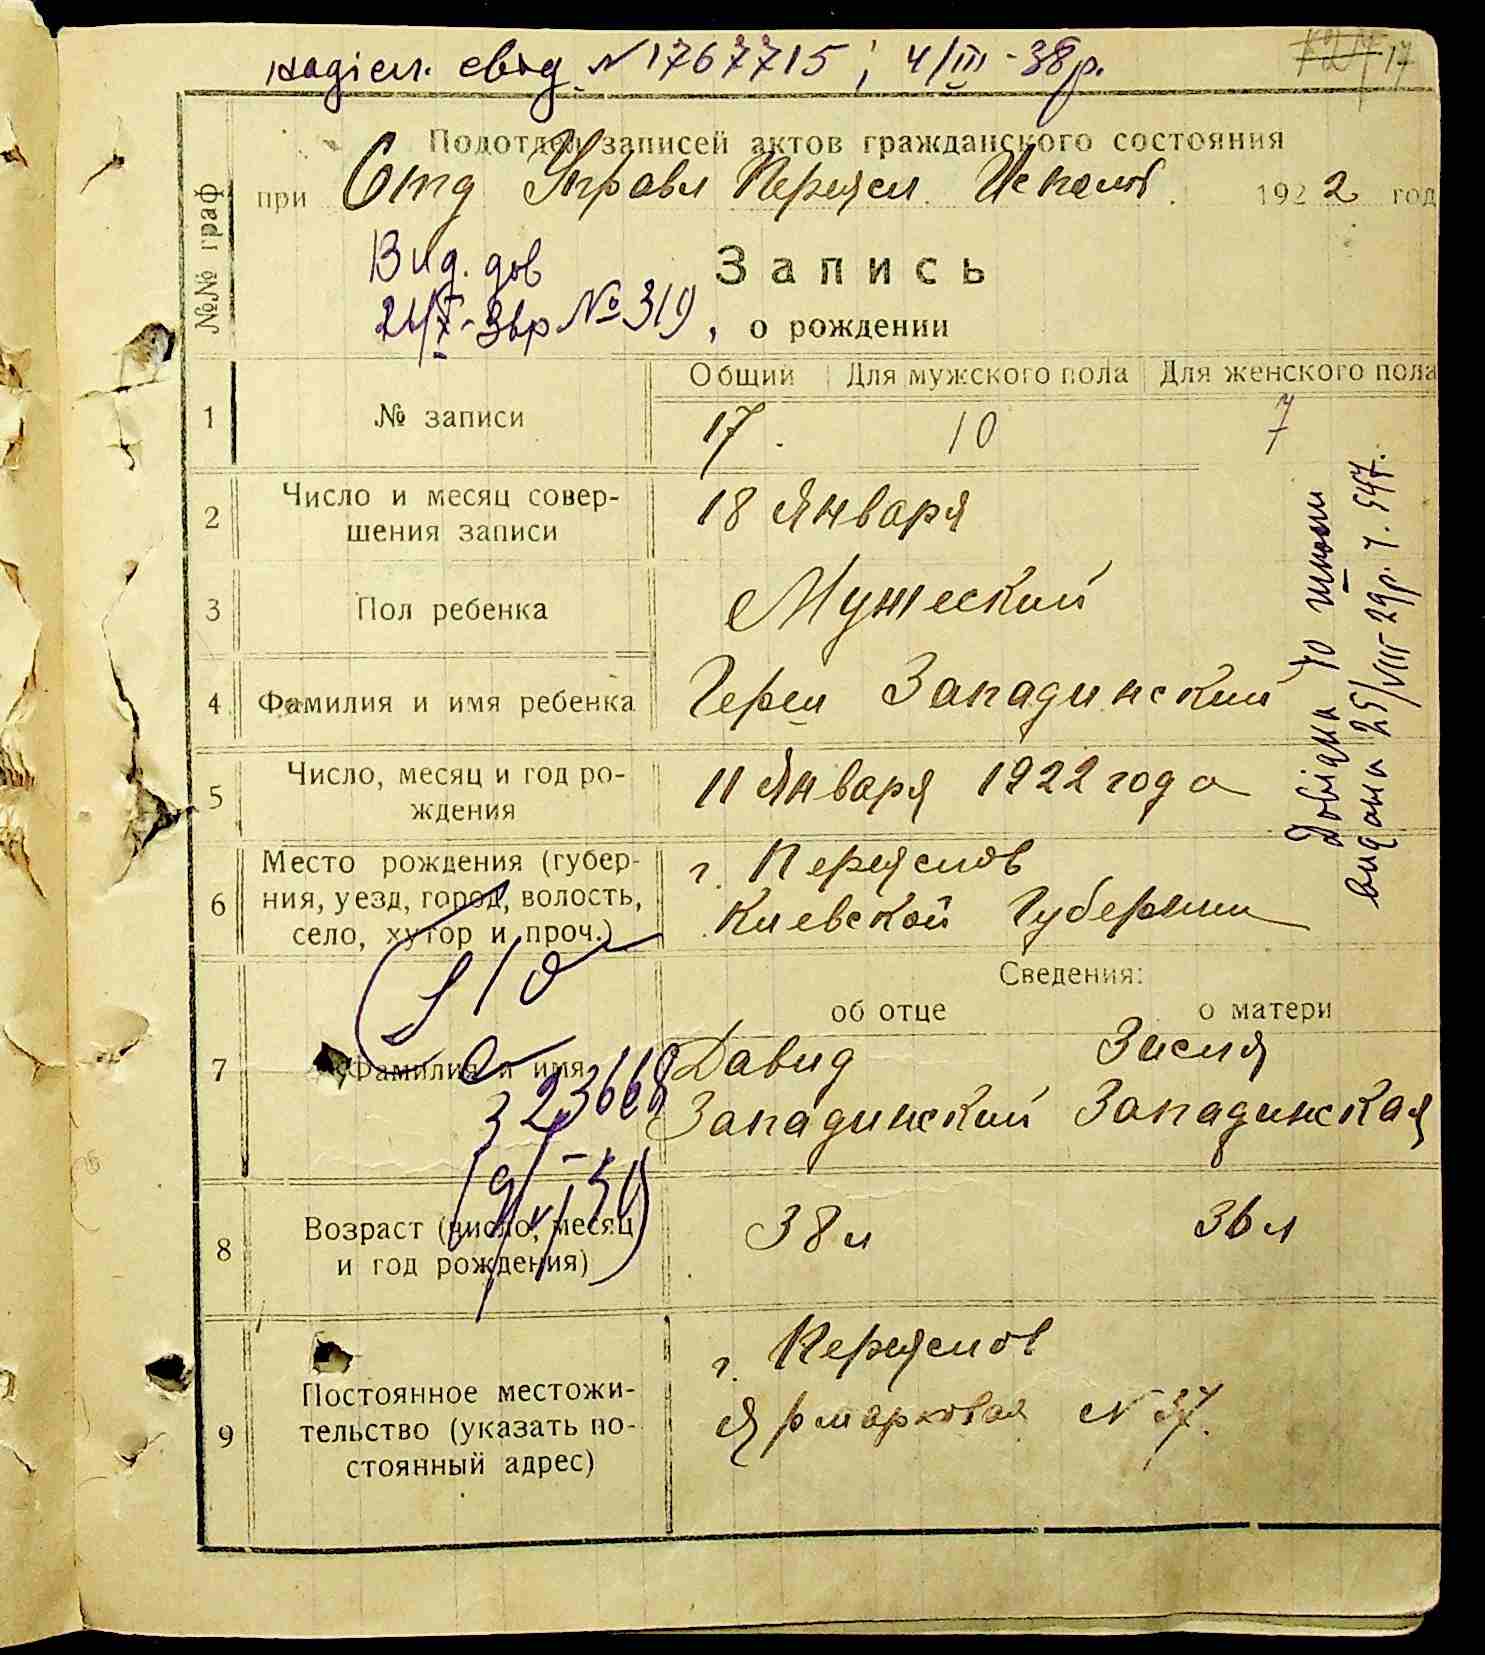 надісл. свід N 1767715; 4/III-38р.
17
Подотдел записей актов гражданского состояния
при Отд Управл Переясл. Исполк. 1922 год
№№ граф
Вид. дов
№ 319,
Запись
о рождении
Общий Для мужского пола Для женского пола
1 № записи 17. 10 7
2 Число и месяц совер-
шения записи 18 Января
3 Пол ребенка Мужеский
4 Фамилия и имя ребенка Герш Западинский
5 Число, месяц и год ро-
ждения 11 Января 1922 года
6 Место рождения (губер-
ния, уезд, город, волость,
село, хутор и проч.) г. Переяслов
Киевской Губернии
Довідка до школи
видана 25/VIII 29р. ч. 547.
Сведения:
об отце о матери
7 Фамилия и имя Давид Зисля
Западинский Западинская
8 Возраст (число, месяц
и год рождения) 38 л 36 л
9 Постоянное местожи-
тельство (указать по-
стоянный адрес) г. Переяслов
Ярмарковая N 37.